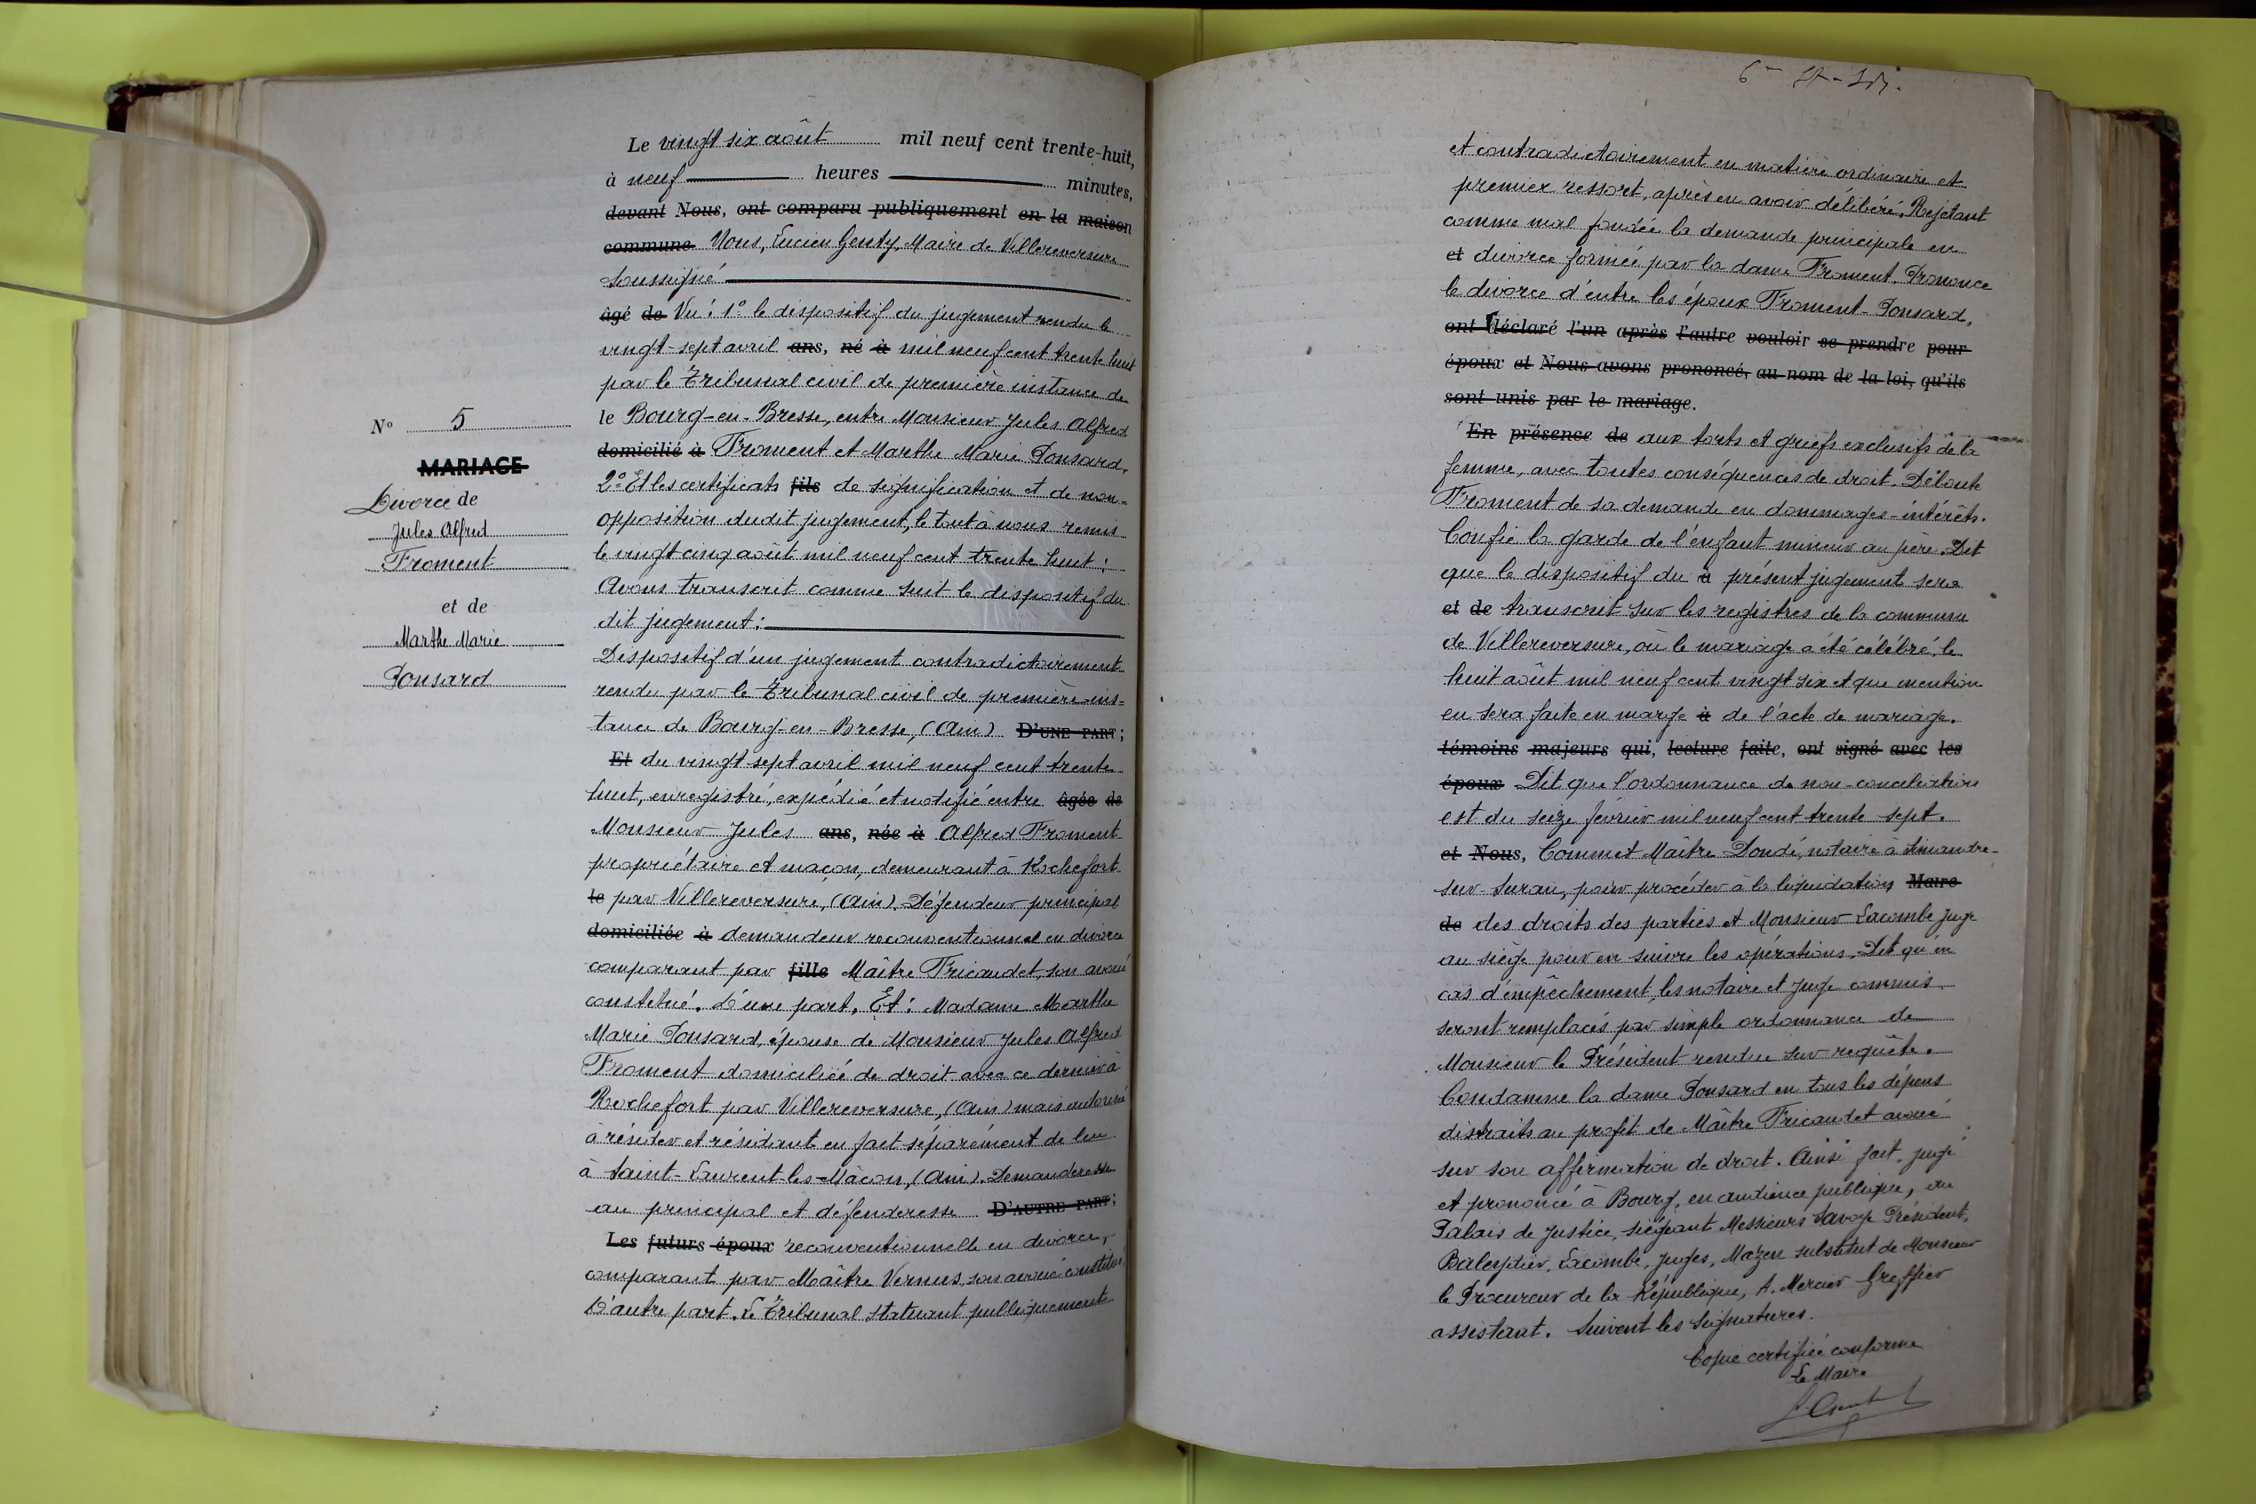 Le vingt six août mil neuf cent trente-huit,
à neuf heures minutes,
devant Nous, ont comparu publiquement en la maison
commune Nous, Lucien Genty, Maire de Villereversure
soussigné
âgé de Vu : 1º le dispositif du jugement rendu le
vingt-sept avril ans, né à mil neuf cent trente huit
par le Tribunal civil de première instance de
le Bourg-en-Bresse, entre Monsieur Jules Alfred
domicilié à Froment et Marthe Marie Ponsard.
2º Et les certificats fils de signification et de non-
opposition dudit jugement, le tout à nous remis
le vingt cinq août mil neuf cent trente huit ;
Avons transcrit comme suit le dispositif du
dit jugement :
Dispositif d'un jugement contradictoirement
rendu par le Tribunal civil de première ins-
tance de Bourg-en-Bresse, (Ain) D'UNE PART ;
Et du vingt sept avril mil neuf cent trente
huit, enregistré, expédié et notifié entre âgée de
Monsieur Jules ans, née à Alfred Froment
propriétaire et maçon, demeurant à Rochefort
le par Villereversure, (Ain). Défendeur principal
domiciliée à demandeur reconventionnel en divorce
comparant par fille Maître Fricaudet, son avoué
constitué. D'une part. Et : Madame Marthe
Marie Ponsard, épouse de Monsieur Jules Alfred
Froment domiciliée de droit avec ce dernier à
Rochefort par Villereversure, (Ain) mais autorisée
à résider et résidant en fait séparément de lui
à Saint-Laurent-les-Mâcon, (Ain). Demanderesse
au principal et défenderesse D'AUTRE PART ;
Les futurs époux reconventionnelle en divorce,
comparant par Maître Vernus, son avoué constitué
D'autre part. Le Tribunal statuant publiquement
Nº 5
MARIAGE
Divorce de
Jules Alfred
Froment
et de
Marthe Marie
Ponsard
et contradictoirement en matière ordinaire et
premier ressort, après en avoir délibéré, Rejetant
comme mal fondée la demande principale en
et divorce formée par la dame Froment. Prononce
le divorce d'entre les époux Froment-Ponsard,
ont déclaré l'un après l'autre vouloir se prendre pour
époux et Nous avons prononcé, au nom de la loi, qu'ils
sont unis par le mariage.
En présence de aux torts et griefs exclusifs de la
femme, avec toutes conséquences de droit. Déboute
Froment de sa demande en dommages-intérêts.
Confie la garde de l'enfant mineur au père. Dit
que le dispositif du à présent jugement sera
et de transcrit sur les registres de la commune
de Villereversure, où le mariage a été célébré, le
huit août mil neuf cent vingt six et que mention
en sera faite en marge à de l'acte de mariage.
témoins majeurs qui, lecture faite, ont signé avec les
époux Dit que l'ordonnance de non-conciliation
est du seize février mil neuf cent trente sept.
et Nous, Commet Maître Dondé, notaire à Simandre-
sur-Suran, pour procéder à la liquidation Maire
de des droits des parties et Monsieur Lacombe juge
au siège pour en suivre les opérations. Dit qu'en
cas d'empêchement, les notaire et juge commis
seront remplacés par simple ordonnance de
Monsieur le Président rendue sur requête.
Condamne la dame Ponsard en tous les dépens
distraits au profit de Maître Fricaudet avoué
sur son affirmation de droit. Ainsi fait, jugé
et prononcé à Bourg, en audience publique, au
Palais de Justice, siégeant Messieurs Savoye Président,
Baleydier, Lacombe, Juges, Mazen substitut de Monsieur
le Procureur de la République, A. Mercier Greffier
assistant. Suivent les signatures.
Copie certifiée conforme
Le Maire